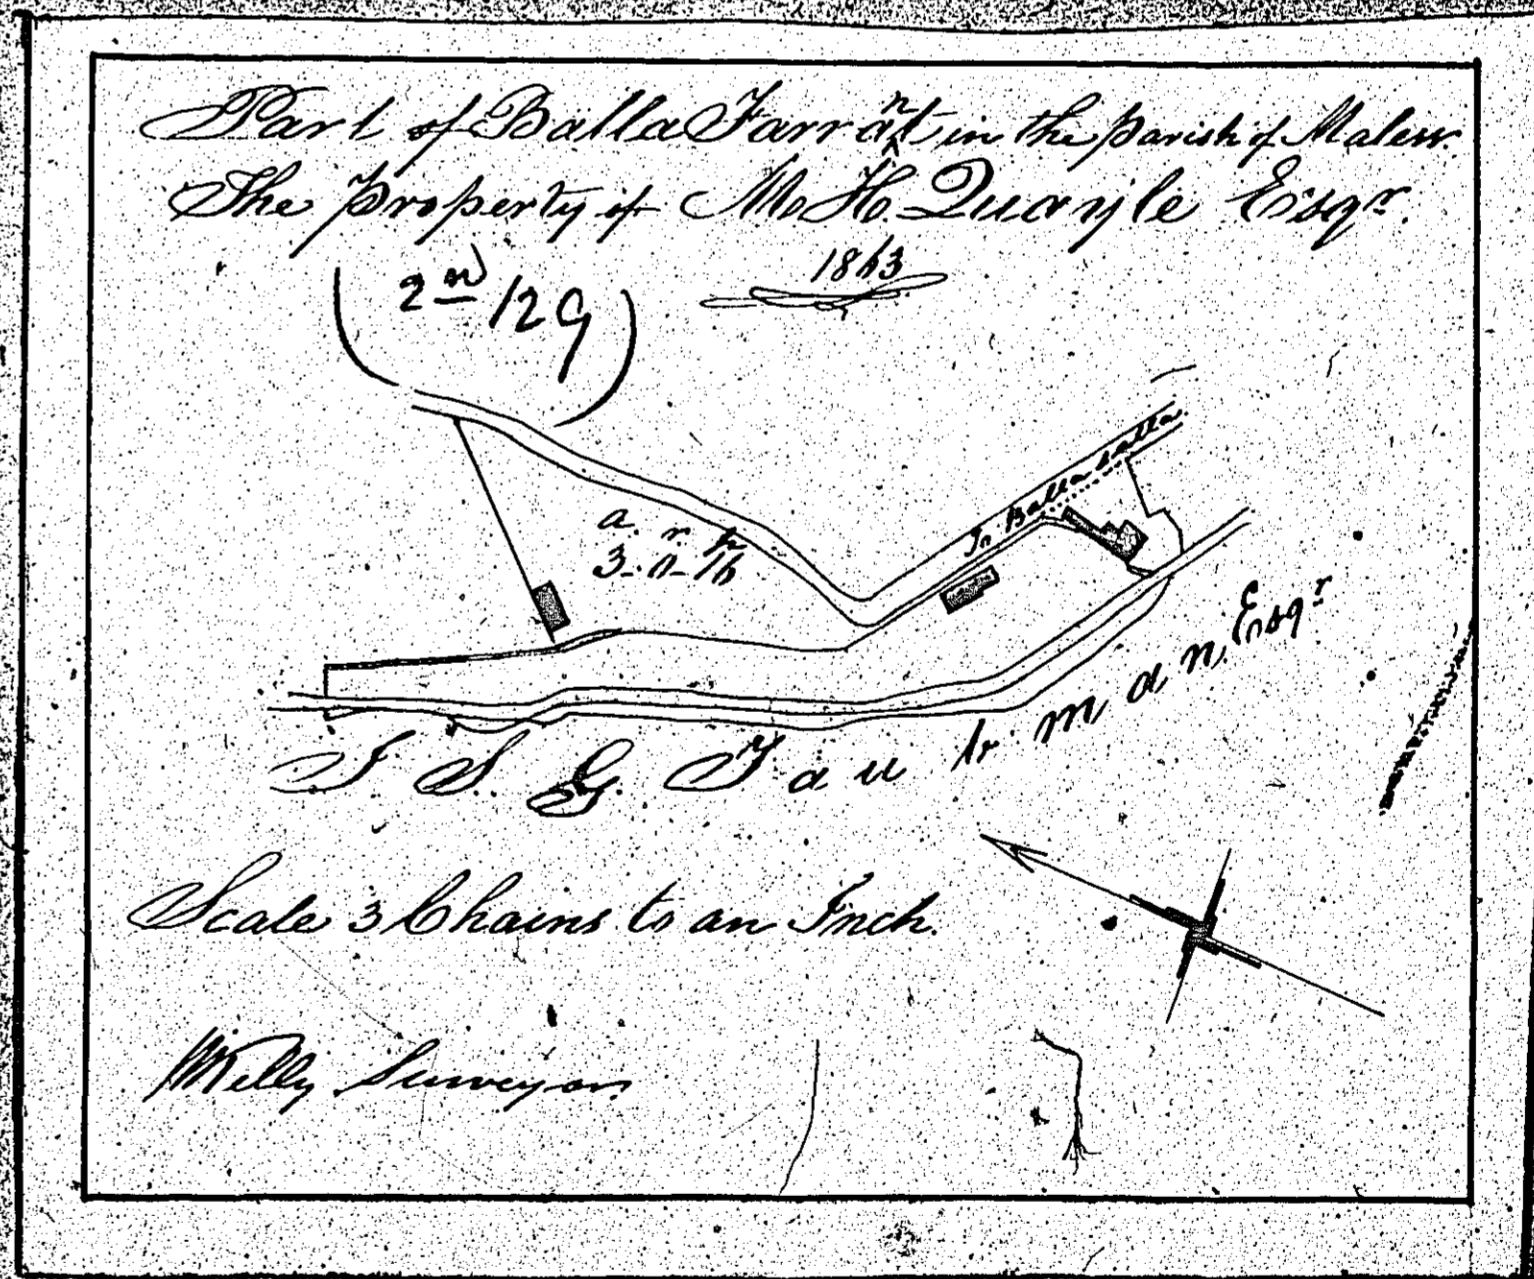 Part of Balla Farrant in the parish of Malew.
The Property of M. H. Quayle Esqr.
1863
(2n 129)
To Balla salla
a. r. p
3-0-16
J S. G. Taubman, Esqr
Scale 3 Chains to an Inch.
Kelly Surveyor